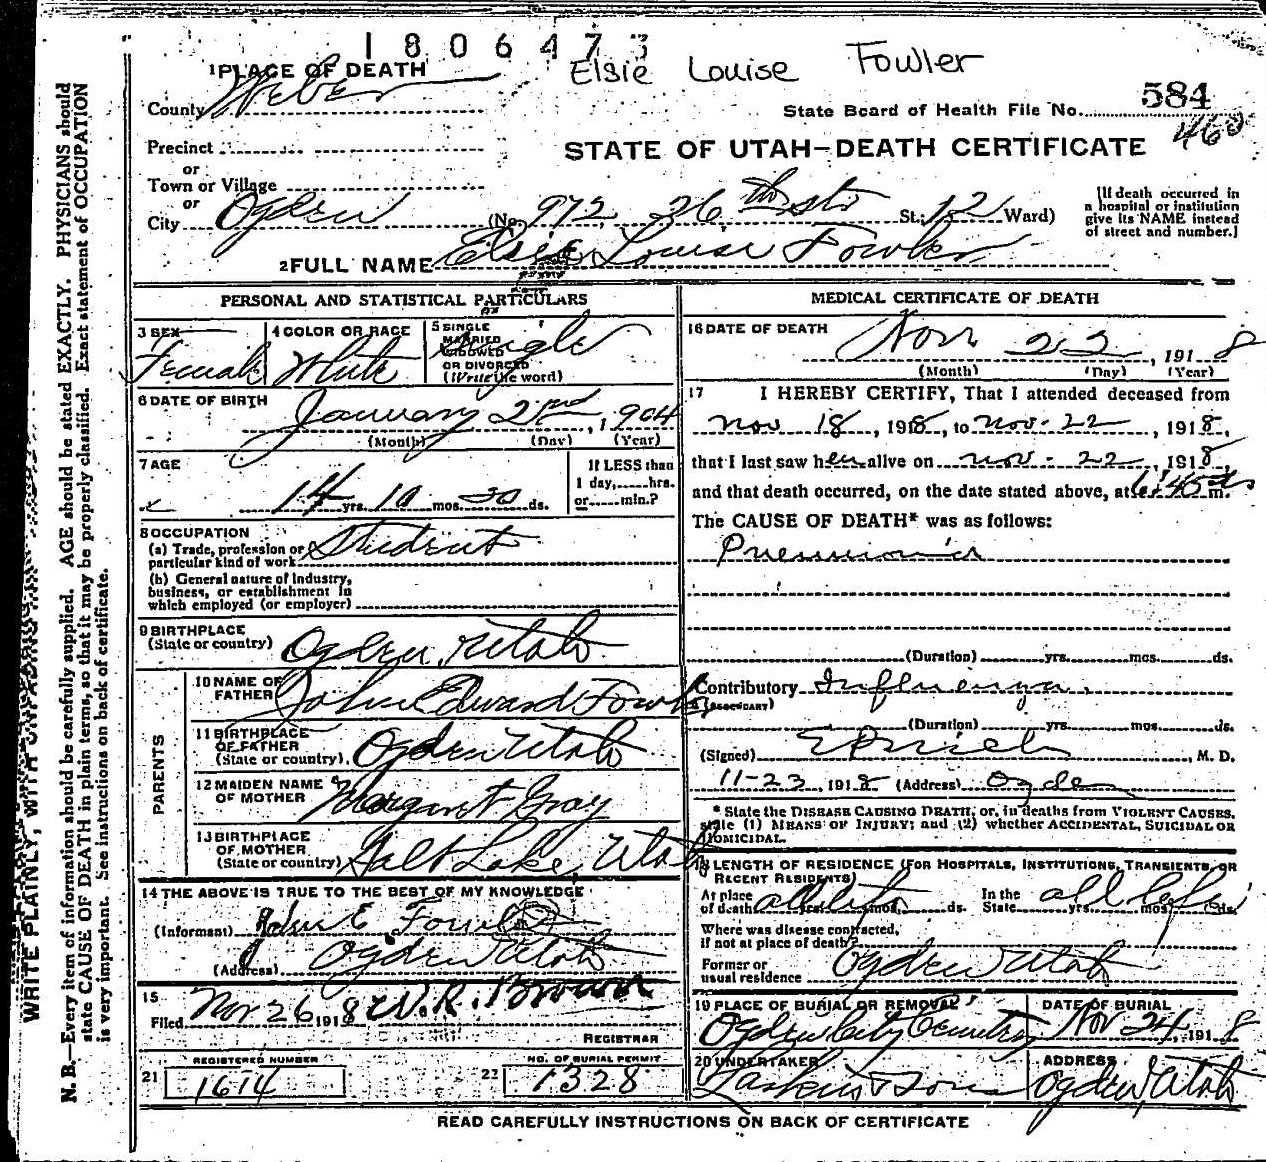 1806473
Elsie Louise Fowler
1 PLACE OF DEATH
County Weber
State Board of Health File No. 584
460
Precinct
or
STATE OF UTAH—DEATH CERTIFICATE
Town or Village
or
City Ogden (No. 972, 26th St.; Ward)
[If death occurred in
a hospital or institution
give its NAME instead
of street and number.]
2 FULL NAME Elsie Louise Fowler
PERSONAL AND STATISTICAL PARTICULARS
3 SEX Female
4 COLOR OR RACE White
5 SINGLE
MARRIED
WIDOWED
OR DIVORCED
(Write the word) Single
6 DATE OF BIRTH January 2nd, 1904
(Month) (Day) (Year)
7 AGE
14 yrs. 10 mos. 20 ds.
If LESS than
1 day, hrs.
or min.?
8 OCCUPATION
(a) Trade, profession or
particular kind of work Student
(b) General nature of industry,
business, or establishment in
which employed (or employer)
9 BIRTHPLACE
(State or country) Ogden, Utah
PARENTS
10 NAME OF
FATHER John Edward Fowler
11 BIRTHPLACE
OF FATHER
(State or country) Ogden Utah
12 MAIDEN NAME
OF MOTHER Margaret Gray
13 BIRTHPLACE
OF MOTHER
(State or country) Salt Lake, Utah
14 THE ABOVE IS TRUE TO THE BEST OF MY KNOWLEDGE
(Informant) John E. Fowler
(Address) Ogden Utah
15
Filed Nov 26 1918 W. R. Brown
REGISTRAR
REGISTERED NUMBER
21 1614
NO. OF BURIAL PERMIT
22 1328
MEDICAL CERTIFICATE OF DEATH
16 DATE OF DEATH Nov 22, 1918
(Month) (Day) (Year)
17 I HEREBY CERTIFY, That I attended deceased from
Nov 18, 1918, to Nov. 22, 1918,
that I last saw her alive on Nov. 22, 1918,
and that death occurred, on the date stated above, at m.
The CAUSE OF DEATH* was as follows:
Pneumonia
(Duration) yrs. mos. ds.
Contributory Influenza.
(SECONDARY)
(Duration) yrs. mos. ds.
(Signed) , M. D.
11-23, 1918 (Address) Ogden
* State the DISEASE CAUSING DEATH; or, in deaths from VIOLENT CAUSES,
state (1) MEANS OF INJURY; and (2) whether ACCIDENTAL, SUICIDAL OR
HOMICIDAL.
18 LENGTH OF RESIDENCE (FOR HOSPITALS, INSTITUTIONS, TRANSIENTS, OR
RECENT RESIDENTS)
At place
of death all life yrs. mos. ds. In the
State all life yrs. mos. ds.
Where was disease contracted,
if not at place of death?
Former or
usual residence Ogden Utah
19 PLACE OF BURIAL OR REMOVAL
Ogden City Cemetery
DATE OF BURIAL
Nov 24, 1918
20 UNDERTAKER
Larkin & Sons
ADDRESS
Ogden, Utah
READ CAREFULLY INSTRUCTIONS ON BACK OF CERTIFICATE
WRITE PLAINLY, WITH UNFADING
N. B.—Every item of information should be carefully supplied. AGE should be stated EXACTLY. PHYSICIANS should
state CAUSE OF DEATH in plain terms, so that it may be properly classified. Exact statement of OCCUPATION
is very important. See instructions on back of certificate.